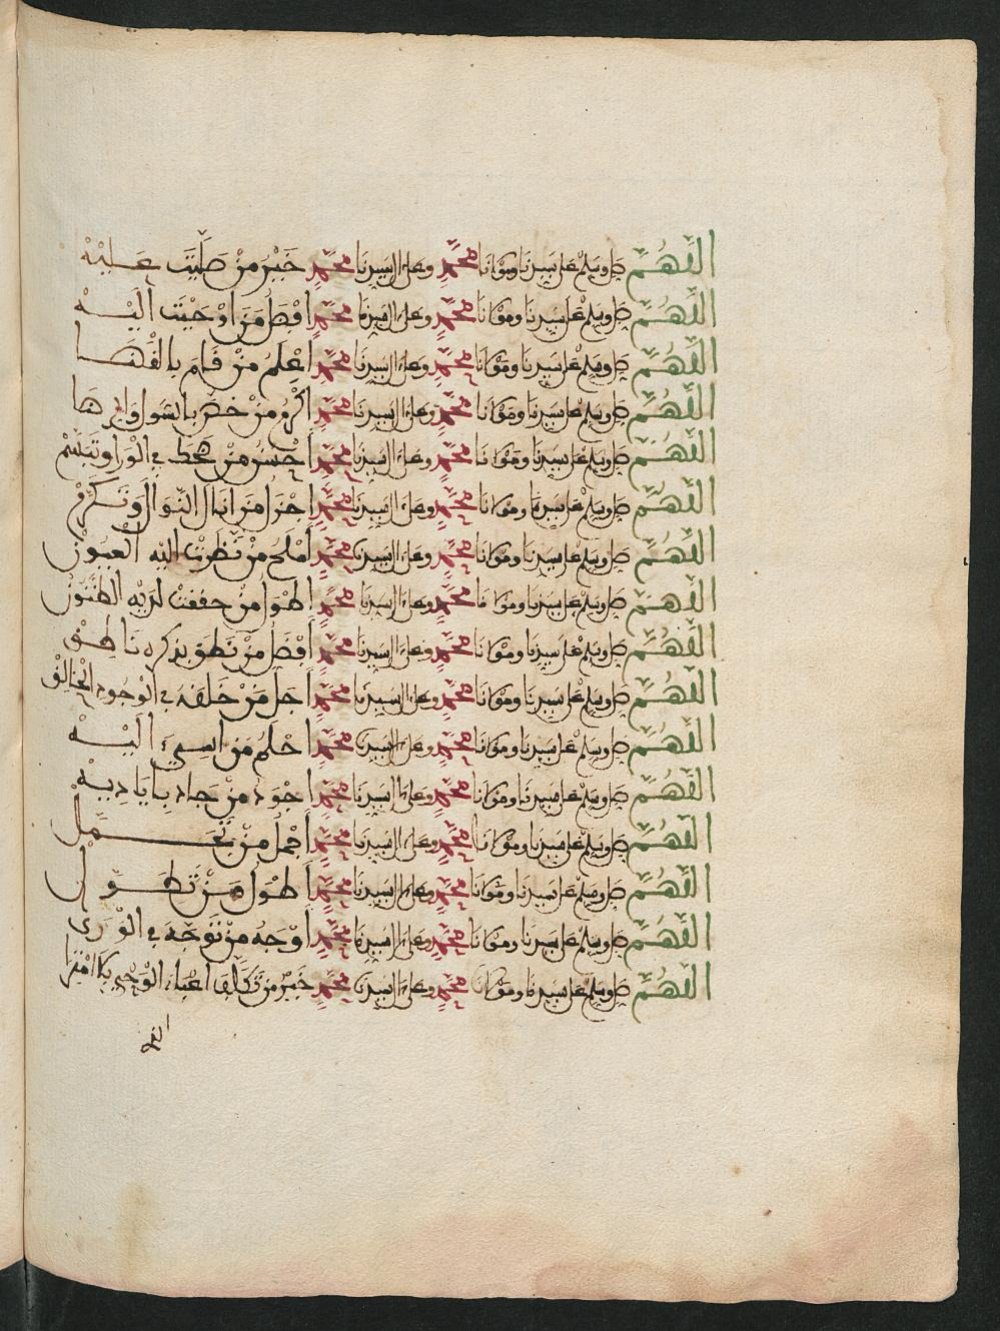 اللهم صل وسلم على سيدنا ومولانا محمد وعلى ال سيدنا محمد خير من صليت عليه
اللهم صل وسلم على سيدنا ومولانا محمد وعلى ال سيدنا محمد افضل من اوحيت اليه
اللهم صل وسلم على سيدنا ومولانا محمد وعلى ال سيدنا محمد اعلم من قام بالقضا
اللهم صل وسلم على سيدنا ومولانا محمد وعلى ال سيدنا محمد اكرم من خص بالشول
اللهم صل وسلم على سيدنا ومولانا محمد وعلى ال سيدنا محمد احسن من في الورا وتبسم
اللهم صل وسلم على سيدنا ومولانا محمد وعلى ال سيدنا محمد اجزل من انال النوال وتكرم
اللهم صل وسلم على سيدنا ومولانا محمد وعلى ال سيدنا محمد املح من نظرت اليه العيون
اللهم صل وسلم على سيدنا ومولانا محمد وعلى ال سيدنا محمد اطول من حققت لديه الظنون
اللهم صل وسلم على سيدنا ومولانا محمد وعلى ال سيدنا محمد افضل من نطق بذكره ناطق
اللهم صل وسلم على سيدنا ومولانا محمد وعلى ال سيدنا محمد اجل من خلقه في الوجود الخالق
اللهم صل وسلم على سيدنا ومولانا محمد وعلى ال سيدنا محمد احلم من اسيء اليه
اللهم صل وسلم على سيدنا ومولانا محمد وعلى ال سيدنا محمد اجود من جاد باياديه
اللهم صل وسلم على سيدنا ومولانا محمد وعلى ال سيدنا محمد اجمل من تجمل
اللهم صل وسلم على سيدنا ومولانا محمد وعلى ال سيدنا محمد اطول من تطول
اللهم صل وسلم على سيدنا ومولانا محمد وعلى ال سيدنا محمد اوجه من توجه في الورى
اللهم صل وسلم على سيدنا ومولانا محمد وعلى ال سيدنا محمد خير من تكلف اعباء الوحي بلا امترا